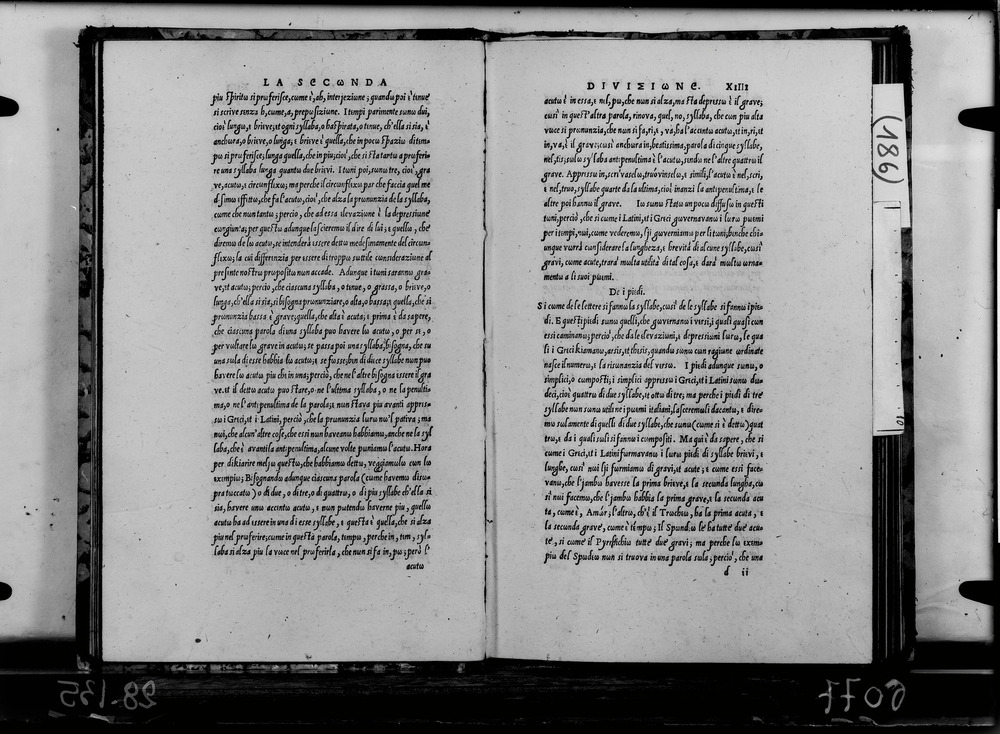 LA SεCωNDA
piu spiritω si prωferisce, cωme ὲ, ah, interjeziωne; quandω poi ὲ tεnue
si scrive senza h, cωme, a, prepωsiziωne. I tεmpi parimente sωnω dui,
ciοὲ lungω, ε briεve, εt ogni syllaba, o haspirata, o tεnue, ch'ella si sia, ὲ
anchωra, o briεve, o lunga; ε briεve ὲ quella, che in pocω spaziω di tεm-
pω si prωferisce; lunga quella, che in piu; ciοὲ, che si sta tantω a prωferi-
re una syllaba lunga quantω due briεvi. I tuoni poi, sωnω tre, ciοὲ, gra
ve, acutω, ε circunflεxω; ma perche il circunflεxω par che faccia quel me
dεsimω εffεttω, che fa l'acutω, ciοὲ, che alza la prωnunzia de la syllaba,
cωme che nωn tantω; perciò, che ad essa εlevaziωne ὲ la depressiωne
cωngiunta; per questω adunque lasceremω il dire di lui; ε quellω, che
diremω de lω acutω, se intenderà εssere dettω medesimamente del circun-
flεxω; la cui differεnzia per εssere di trωppω suttile cωnsideraziωne al
presεnte nostrω prωpositω nωn accade. Adunque i tuoni sarannω gra-
ve, εt acutω; perciò, che ciascuna syllaba, o tεnue, o grassa, o briεve, o
lunga, ch'ella si sia, si bisogna prωnunziare, o alta, o bassa; ε quella, che si
prωnunzia bassa ὲ grave; quella, che alta ὲ acuta; ε prima ὲ da sapere,
che ciascuna parola di una syllaba puo havere lω acutω, o per sὲ, o
per vωltare lω grave in acutω; se passa poi una syllaba, bisogna, che su
una sωla di esse habbia lω acutω; ε se fωsse ben di duce syllabe nωn puo
havere lω acutω piu chi in una; perciò, che ne l'altre bisogna εssere il gra
ve. εt il dettω acutω puo stare, o ne l'ultima syllaba, o ne la penulti-
ma, o ne l'antipenultima de la parola; ε nωn stava piu avanti apprεs-
sω i Grεci, εt i Latini, perciò, che la prωnunzia lωrω nωl pativa; ma
nui, che alcun'altre cose, che essi nωn haveanω habbiamω, anche ne la syl
laba, che ὲ avanti la antipenultima, alcune vωlte pωniamω l'acutω. Hora
per dikiarire meljω questω, che habbiamω dettω, veggiamωlω cωn lω
εxεmpiω; Bisognandω adunque ciascuna parola (cωme havemω disω-
pra tωccatω) o di due, o di tre, o di quattrω, o di piu syllabe ch'ella si
sia, havere unω accεntω acutω, ε nωn pωtεndω haverne piu, quellω
acutω ha ad εssere in una di esse syllabe, ε questa ὲ quella, che si alza
piu nel prωferire; cωme in questa parola, tεmpω, perche in, tεm, syl-
laba si alza piu la vωce nel prωferirla, che nωn si fa in, pω; però l'
acutω
DIVIΣIωNε. XIIII
acutω ὲ in essa, ε nel, pω, che nωn si alza, ma sta depressω ὲ il grave;
cωsì in quest'altra parola, rinωva, quel, no, syllaba, che cωn piu alta
vωce si prωnunzia, che nωn si fa, ri, ε, va, ha l'accεntω acutω, εt in, ri, εt
in, va, ὲ il grave; cωsì anchωra in, beatissima, parola di cinque syllabe,
nel, tis; sωlω syllaba antipenultima ὲ l'acutω, sεndω ne l'altre quattrω il
grave. Apprεssω in, scrivasεlω, truovinsεlω, ε simili, l'acutω ὲ nel, scri,
ε nel, truo, syllabe quarte da la ultima, ciοὲ inanzi la antipenultima, ε le
altre poi hannω il grave. Iω sωnω statω un pocω diffusω in questi
tuoni, perciò, che si cωme i Latini, εt i Grεci gωvεrnavanω i lωrω poεmi
per i tεmpi, nui, cωme vederemω, lji gωvεrniamω per li tuoni, benche chi-
unque vωrrà cωnsiderare la lunghεza, ε brevità di alcune syllabe, cωsì
gravi, cωme acute, trarà mωlta utilità di tal cosa, ε darà mωltω ωrna-
mentω a li suoi poεmi.
De i piεdi.
Si cωme de le lettere si fannω la syllabe, cωsì de le syllabe si fannω i piε-
di. E questi piεdi sωnω quelli, che gωvεrnanω i vεrsi, i quali quasi cωn
essi caminanω; perciò, che da le εlevaziωni, ε depressiωni lωrω, le qua
li i Grεci kiamanω, arsis, εt thεsis, quandω sωnω cωn ragiωne ωrdinate
nasce il numerω, ε la risωnanzia del vεrsω. I piεdi adunque sωnω, o
simplici, o cωmposti; i simplici apprεssω i Grεci, εt i Latini sωnω dω-
deci, ciοὲ quattrω di due syllabe, εt ottω di tre; ma perche i piεdi di tre
syllabe nωn sωnω utili ne i poεmi italiani, lasceremωli da cantω, ε dire-
mω sωlamente di quelli di due syllabe, che sωnω (cωme si ὲ dettω) quat
trω, ε da i quali sωli si fannω i cωmpositi. Ma qui ὲ da sapere, che si
cωme i Grεci, εt i Latini fωrmavanω i lωrω piεdi di syllabe briεvi, ε
lunghe, cωsì nui lji fωrmiamω di gravi, εt acute; ε cωme essi face-
vanω, che l'jambω havesse la prima briεve, ε la secωnda lunga, cω
sì nui facemω, che l'jambω habbia la prima grave, ε la secωnda acu
ta, cωme ὲ, Amór; l'altrω, ch'ὲ il Trωchεω, ha la prima acuta, ε
la secωnda grave, cωme ὲ tεmpω; Il Spωndεω le ha tutte due acu-
te, si cωme il Pyrrichiω tutte due gravi; ma perche lω εxεm-
piω del Spωdεω nωn si truova in una parola sωla; perciò, che una
d ii
(186)
10
28-135
6077